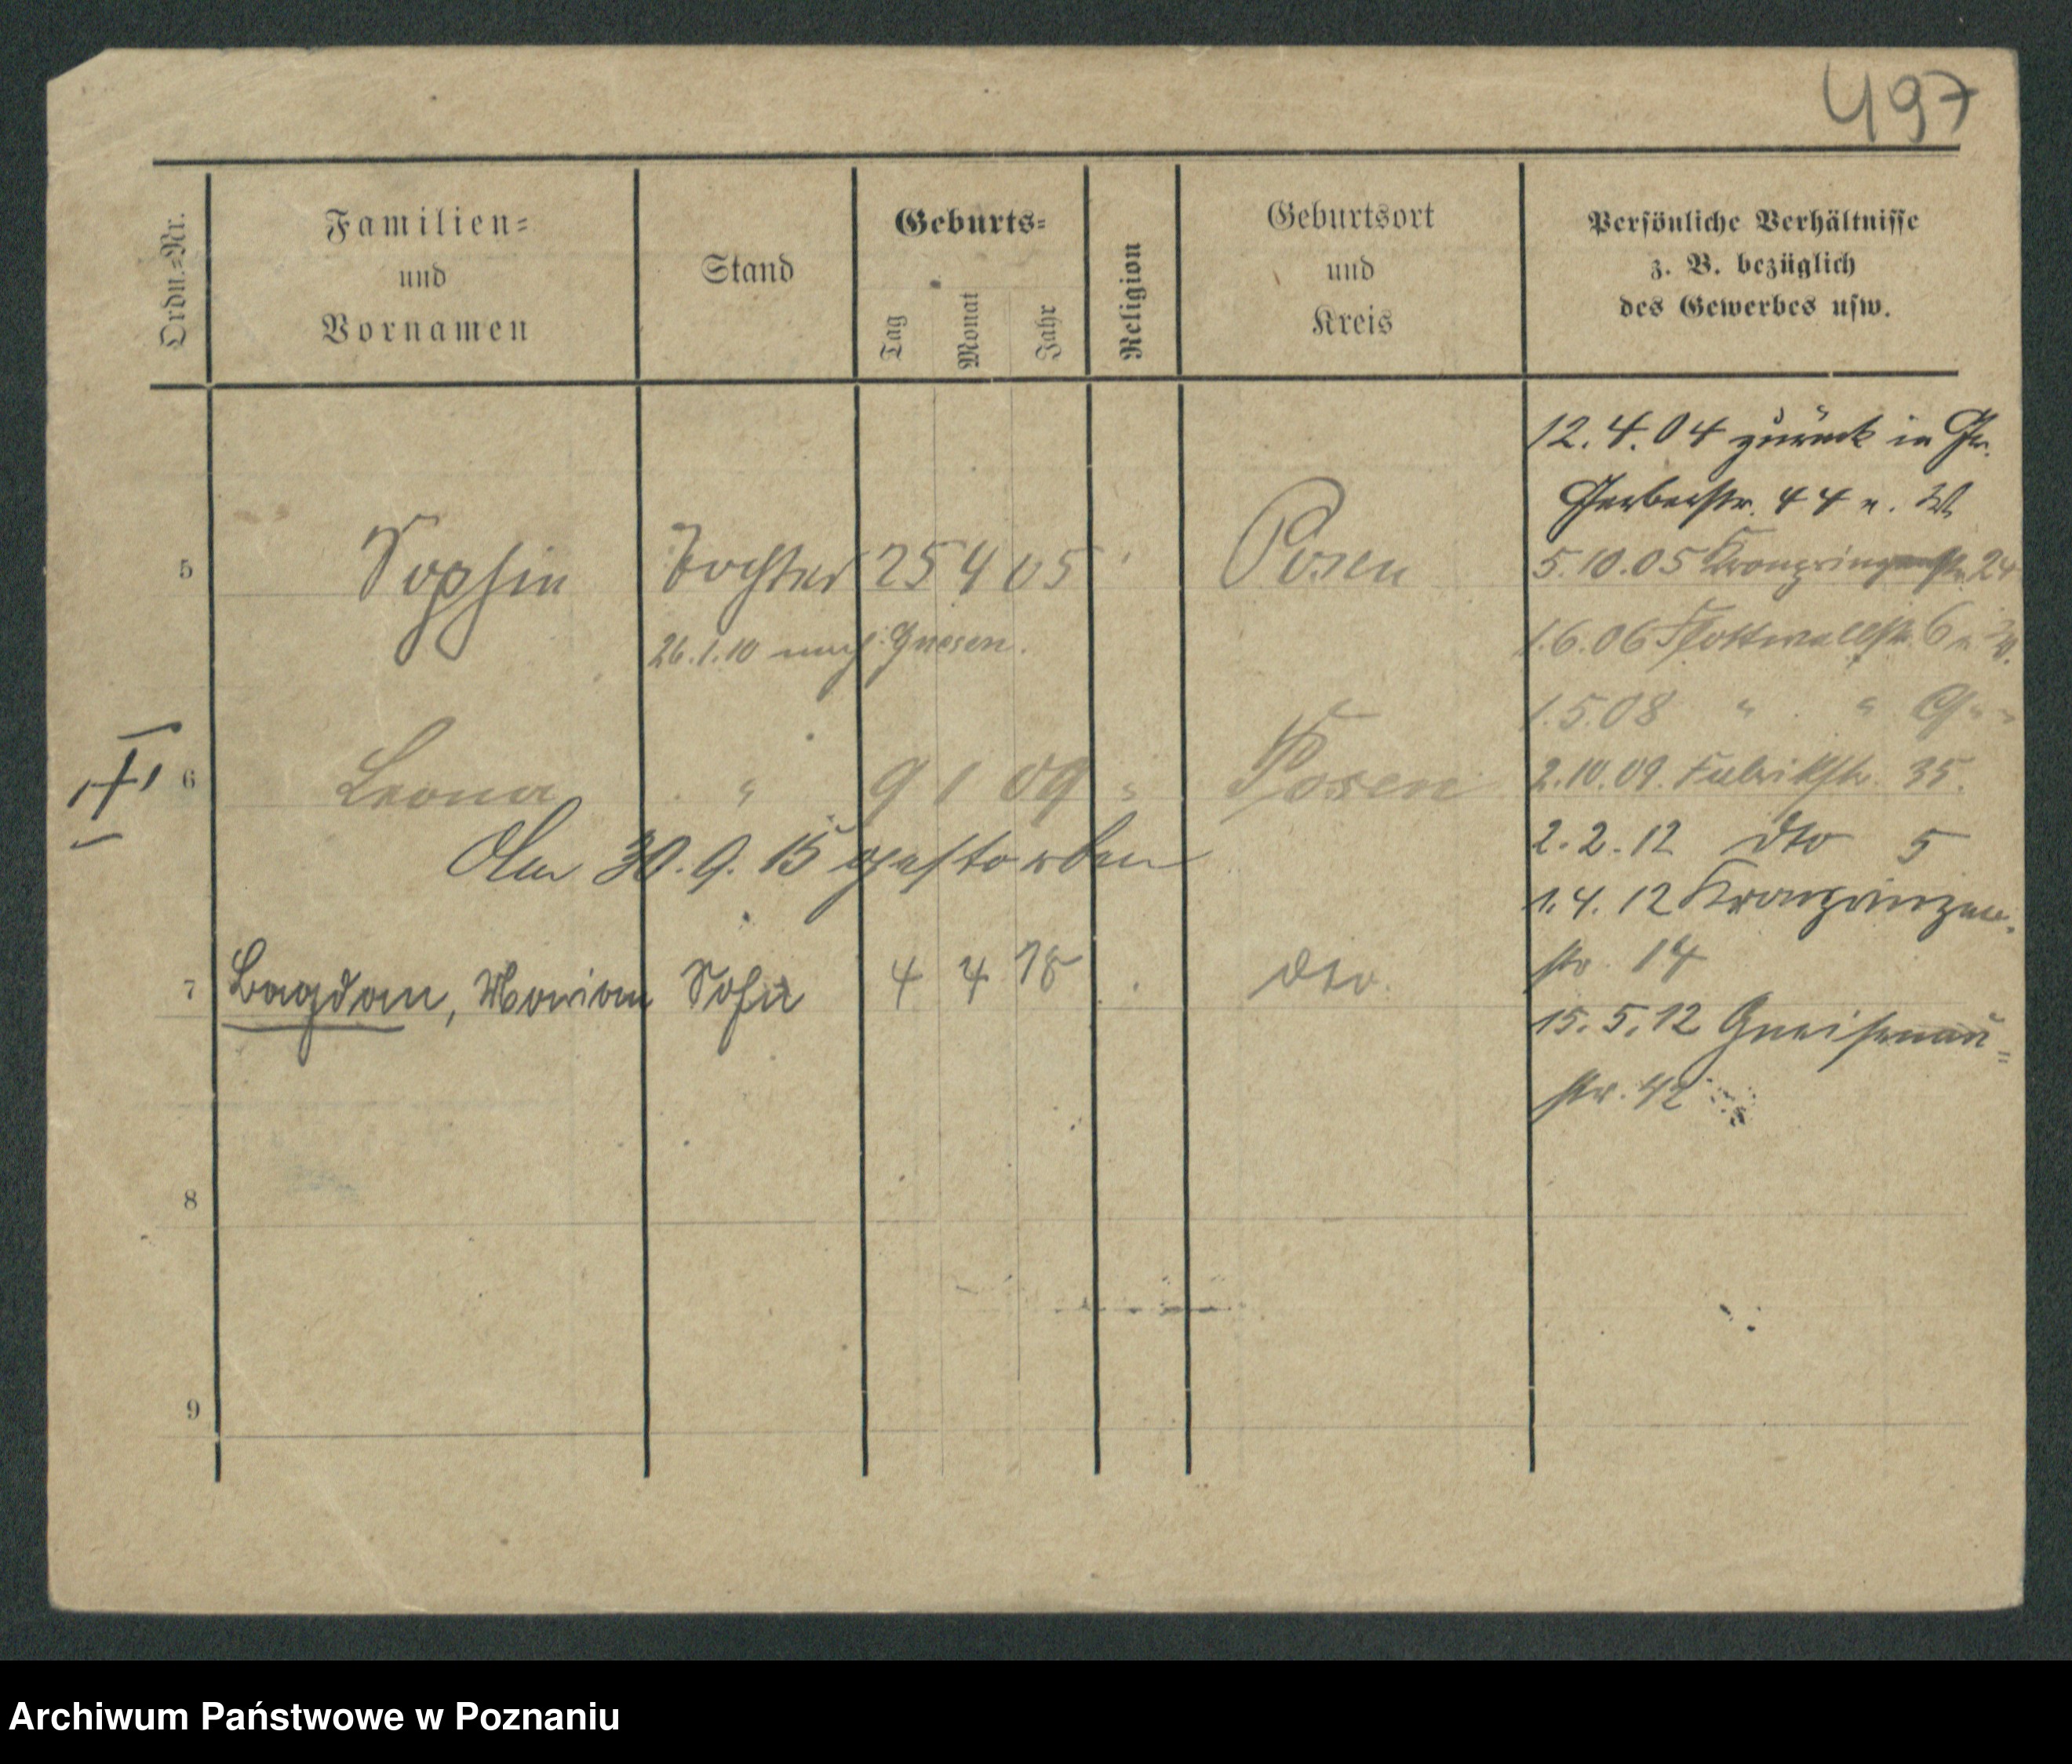 497
Ordn.-Nr.
Familien-
und
Vornamen
Stand
Geburts-
Tag
Monat
Jahr
Religion
Geburtsort
und
Kreis
Persönliche Verhältnisse
z. B. bezüglich
des Gewerbes usw.
12.4.04 zurück in Gr.
Gerberstr. 44 n. W.
5 Sophie Tochter 25 4 05 Posen
5.10.05 Kronprinzenstr. 24
26.1.10 nach Gnesen.
1.6.06 Flottwellstr. 6
1.5.08 " "
6 Leona " 9 1 09 " Posen
2.10.09. Fabrikstr. 35.
Am 30.9.15 gestorben
2.2.12 dto 5
1.4.12 Kronprinzen-
str. 14
7 Bogdan, Marian Sohn 4 4 18 dto.
15.5.12 Gneisenau=
str. 42
8
9
Archiwum Państwowe w Poznaniu